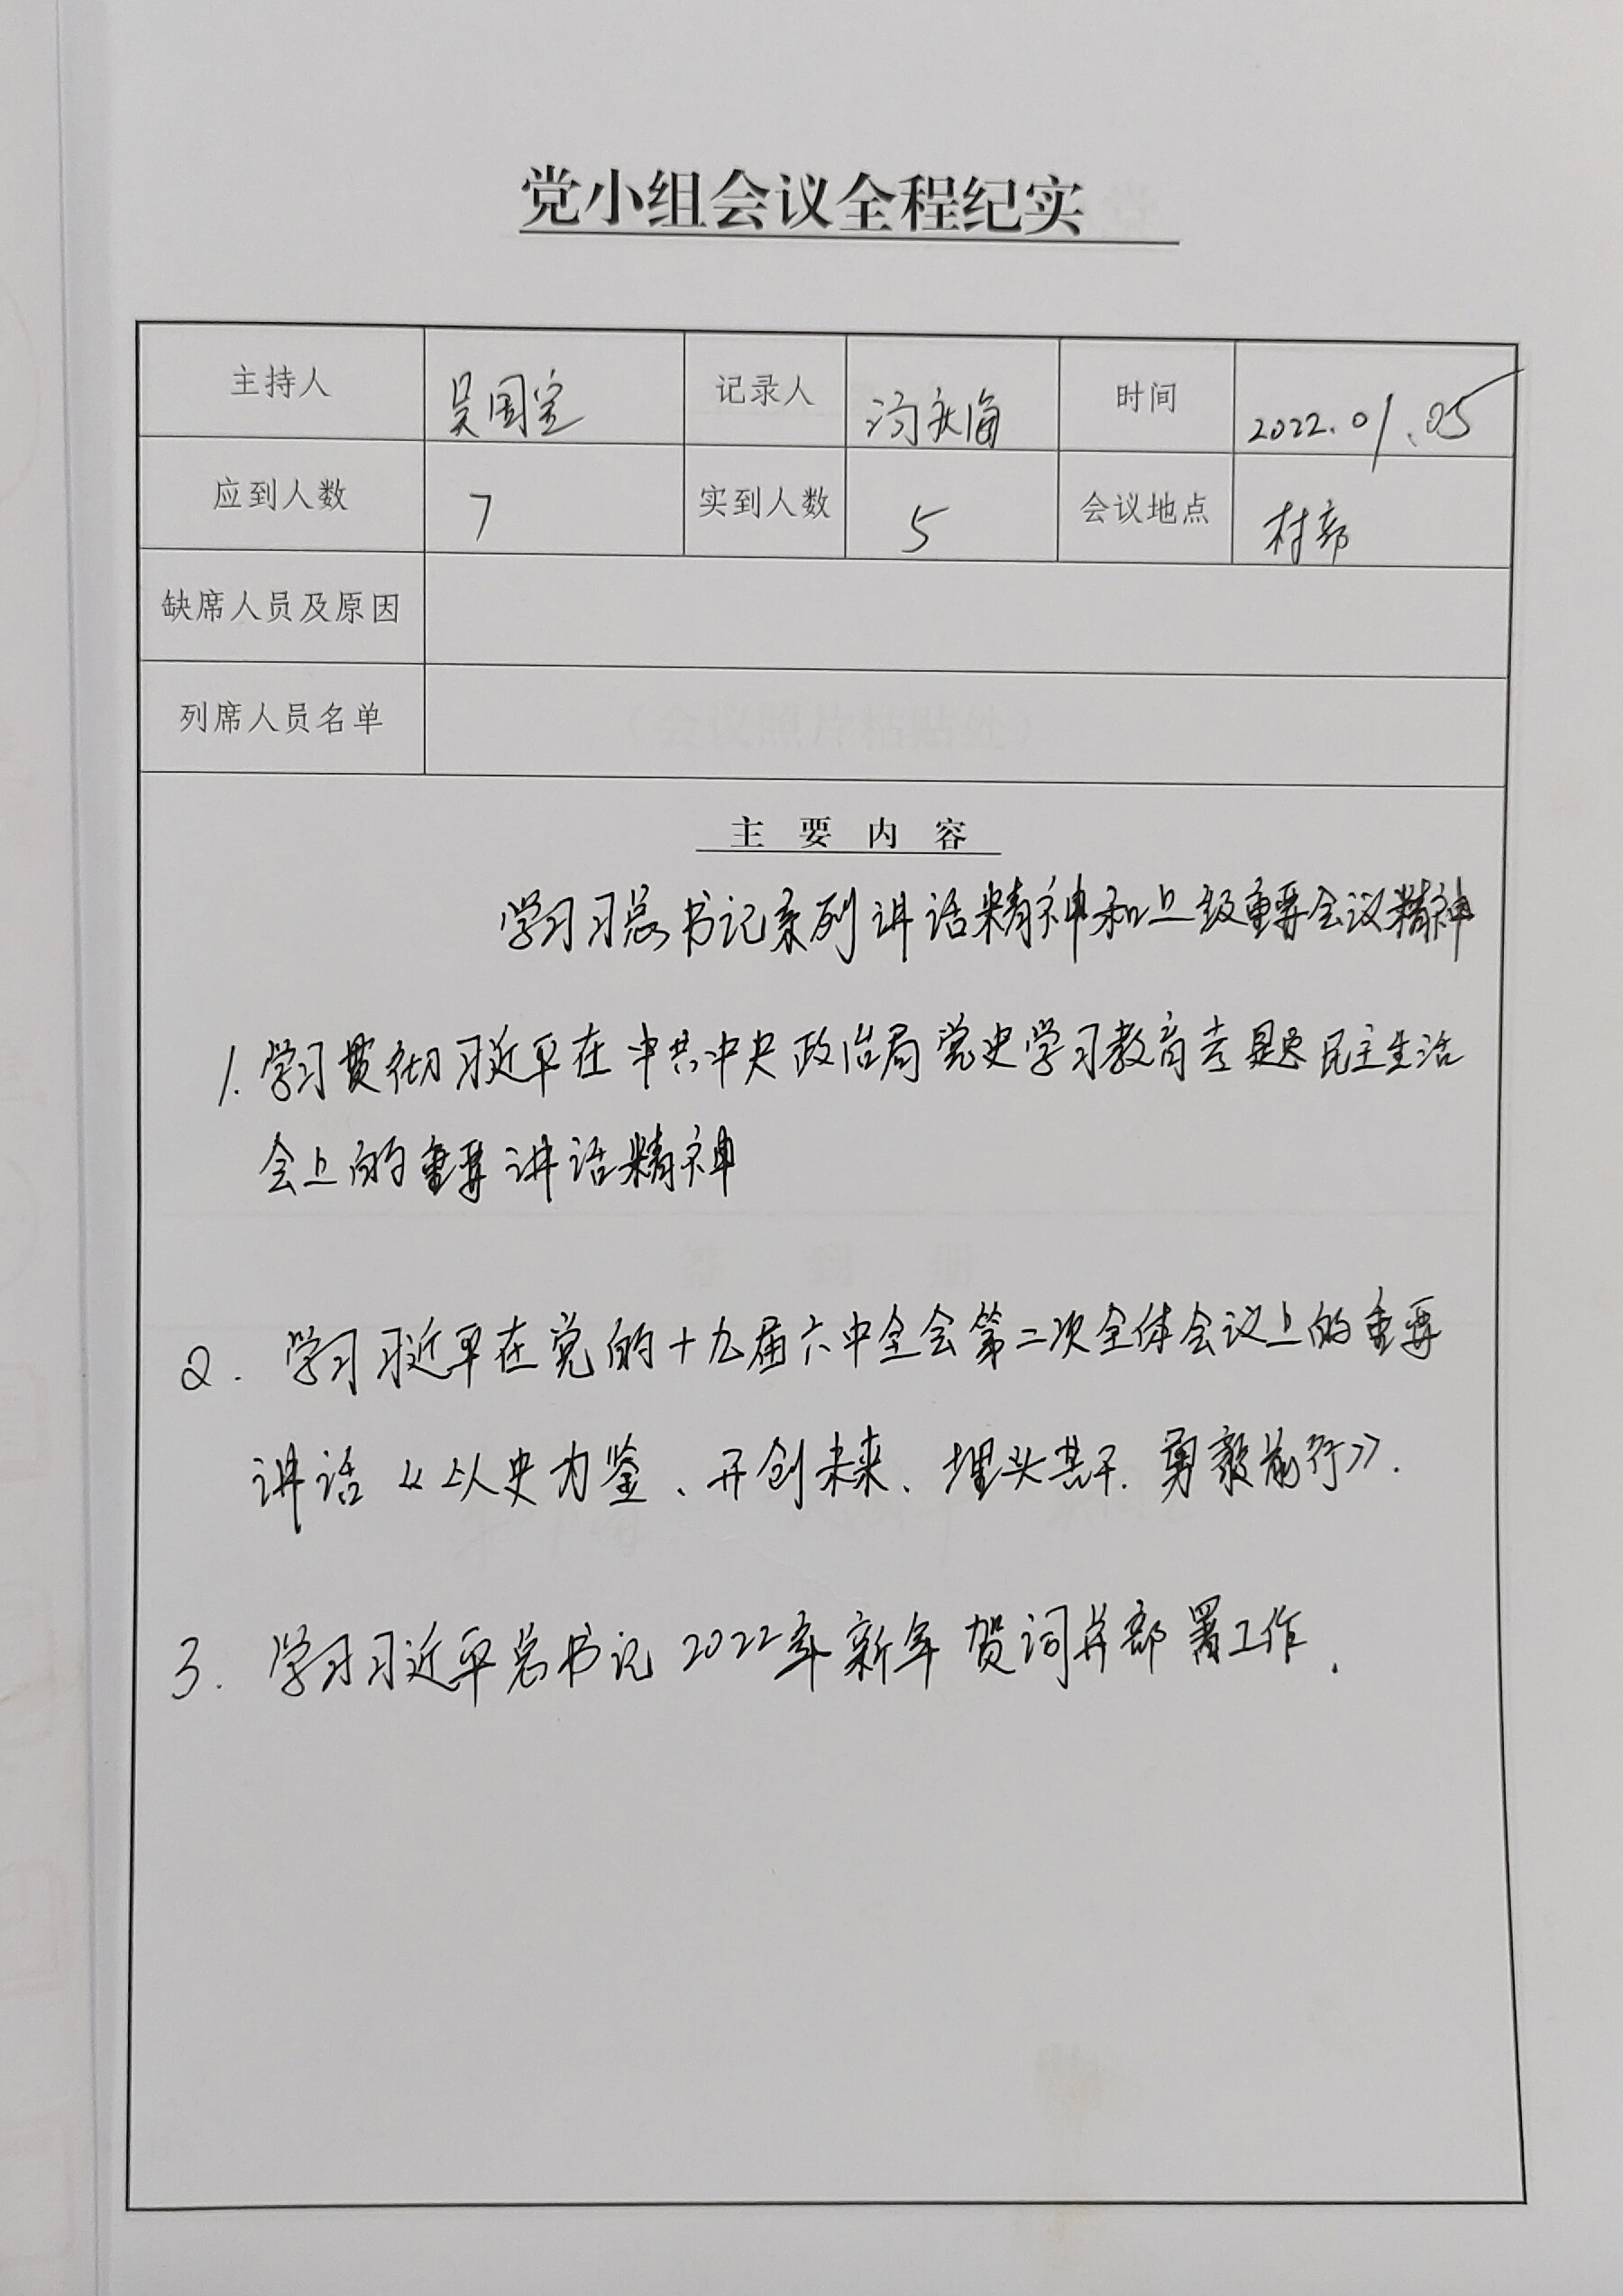 党小组会议全程纪实
主持人 吴国宝 记录人 海 时间 2022.01.05
应到人数 7 实到人数 5 会议地点 村部
缺席人员及原因
列席人员名单
主要内容
学习习总书记系列讲话精神和上级重要会议精神
1.学习贯彻习近平在中共中央政治局党史学习教育专题民主生活
会上的重要讲话精神
2. 学习习近平在党的十九届六中全会第二次全体会议上的重要
讲话《以史为鉴、开创未来、埋头苦干、勇毅前行》.
3. 学习习近平总书记2022年新年贺词并部署工作.